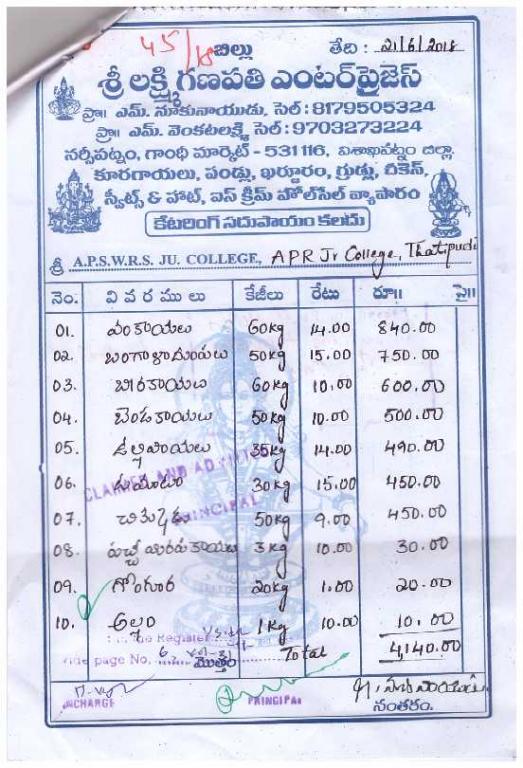 45/18 బిల్లు తేది : 21/6/2018
శ్రీ లక్ష్మిగణపతి ఎంటర్‌ప్రైజెస్
ప్రొ॥ ఎమ్. నూకునాయుడు, సెల్ : 8179505324
ప్రొ॥ ఎమ్. వెంకటలక్ష్మి, సెల్ : 9703273224
నర్సీపట్నం, గాంధీ మార్కెట్ - 531116, విశాఖపట్నం జిల్లా.
కూరగాయలు, పండ్లు, ఖర్జూరం, గ్రుడ్లు, చికెన్,
స్వీట్స్ & హాట్, ఐస్ క్రీమ్ హోల్‌సేల్ వ్యాపారం
కేటరింగ్ సదుపాయం కలదు
శ్రీ A.P.S.W.R.S. JU. COLLEGE, APR Jr College, Thatipudi
నెం. వివరములు కేజీలు రేటు రూ॥ పై॥
01. వంకాయలు 60kg 14.00 840.00
02. బంగాళాదుంపలు 50kg 15.00 750.00
03. బీరకాయలు 60kg 10.00 600.00
04. బెండకాయలు 50kg 10.00 500.00
05. ఉల్లిపాయలు 35kg 14.00 490.00
06. టమాటం 30kg 15.00 450.00
CLAIMED AND ADMITTED
PRINCIPAL
07. 50kg 9.00 450.00
08. పచ్చిమిరపకాయలు 3kg 10.00 30.00
09. గోంగూర 20kg 1.00 20.00
10. అల్లం 1kg 10.00 10.00
the Register
vide page No. 6, మొత్తం Total 4,140.00
INCHARGE PRINCIPAL సంతకం.